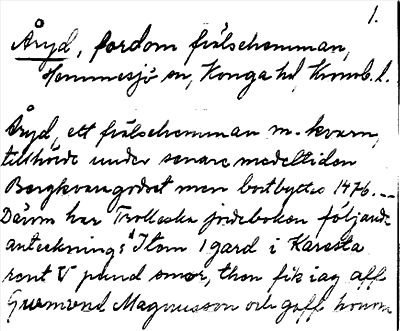 1.
Åryd, fordom frälsehemman,
Hemmesjö sn, Konga hd, Kronob. l.
Åryd, ett frälsehemman m. kvarn,
tillhörde under senare medeltiden
Bergkvaragodset men bortbyttes 1476. --
Därom har Trolleska jordeboken följande
anteckning: "Item 1 gard i Karesta
rent V pund smør, then fik iag aff
Gudmund Magnusson och gaff honom